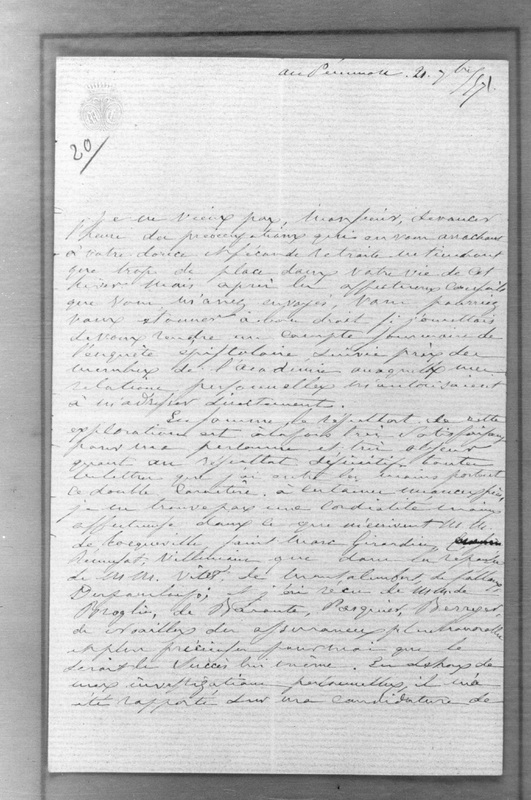 au Pérennou 21 7bre / 57.
20/
Je ne veux pas, Monsieur, devancer
l'heure des préoccupations qui en vous arrachant
à votre douce et féconde retraite ne tiendront
que trop de place dans votre vie de cet
hiver mais après les affectueux conseils
que vous m'avez envoyés, vous pourriez
vous étonner à bon droit si j'omettais
de vous rendre un compte sommaire de
l'enquête épistolaire suivie près des
membres de l'Académie auxquels mes
relations personnelles m'autorisaient
à m'adresser directement.
En somme, le résultat de cette
exploration est à la fois très satisfaisant
pour ma personne et très obscur
quant au résultat définitif. Toutes
les lettres que j'ai entre les mains portent
ce double caractère. à certaines nuances près,
je ne trouve pas une cordialité moins
affectueuse dans ce que m'écrivent M M.
de Tocqueville, Saint Marc Girardin,
Villemain que dans les réponses
de M M. Vitet, de Montalembert, de Falloux
Dupanloup; j'ai reçu de M M. de
Broglie, de Barante, Pasquier, Berryer,
de Noailles des assurances plus honorables
et plus précieuses pour moi que le
serait le succès lui même. En dehors de
mes investigations personnelles, il m'a
été rapporté sur ma candidature de